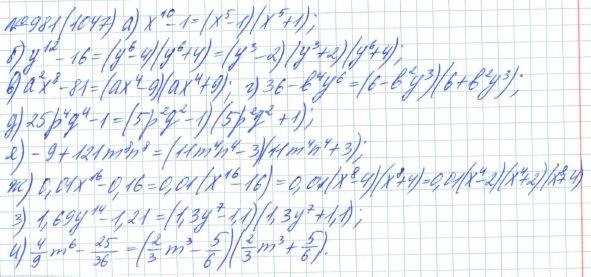 №981(1047) а) x¹⁰-1=(x⁵-1)(x⁵+1);
б) y¹²-16=(y⁶-4)(y⁶+4)=(y³-2)(y³+2)(y⁶+4);
в) a²x⁸-81=(ax⁴-9)(ax⁴+9); г) 36-b⁴y⁶=(6-b²y³)(6+b²y³);
д) 25p⁴q⁴-1=(5p²q²-1)(5p²q²+1);
е) -9+121m⁸n⁸=(11m⁴n⁴-3)(11m⁴n⁴+3);
ж) 0,01x¹⁶-0,16=0,01(x¹⁶-16)=0,01(x⁸-4)(x⁸+4)=0,01(x⁴-2)(x⁴+2)(x⁸+4)
з) 1,69y¹⁴-1,21=(1,3y⁷-1,1)(1,3y⁷+1,1);
и) 4/9 m⁶-25/36=(2/3 m³-5/6)(2/3 m³+5/6).